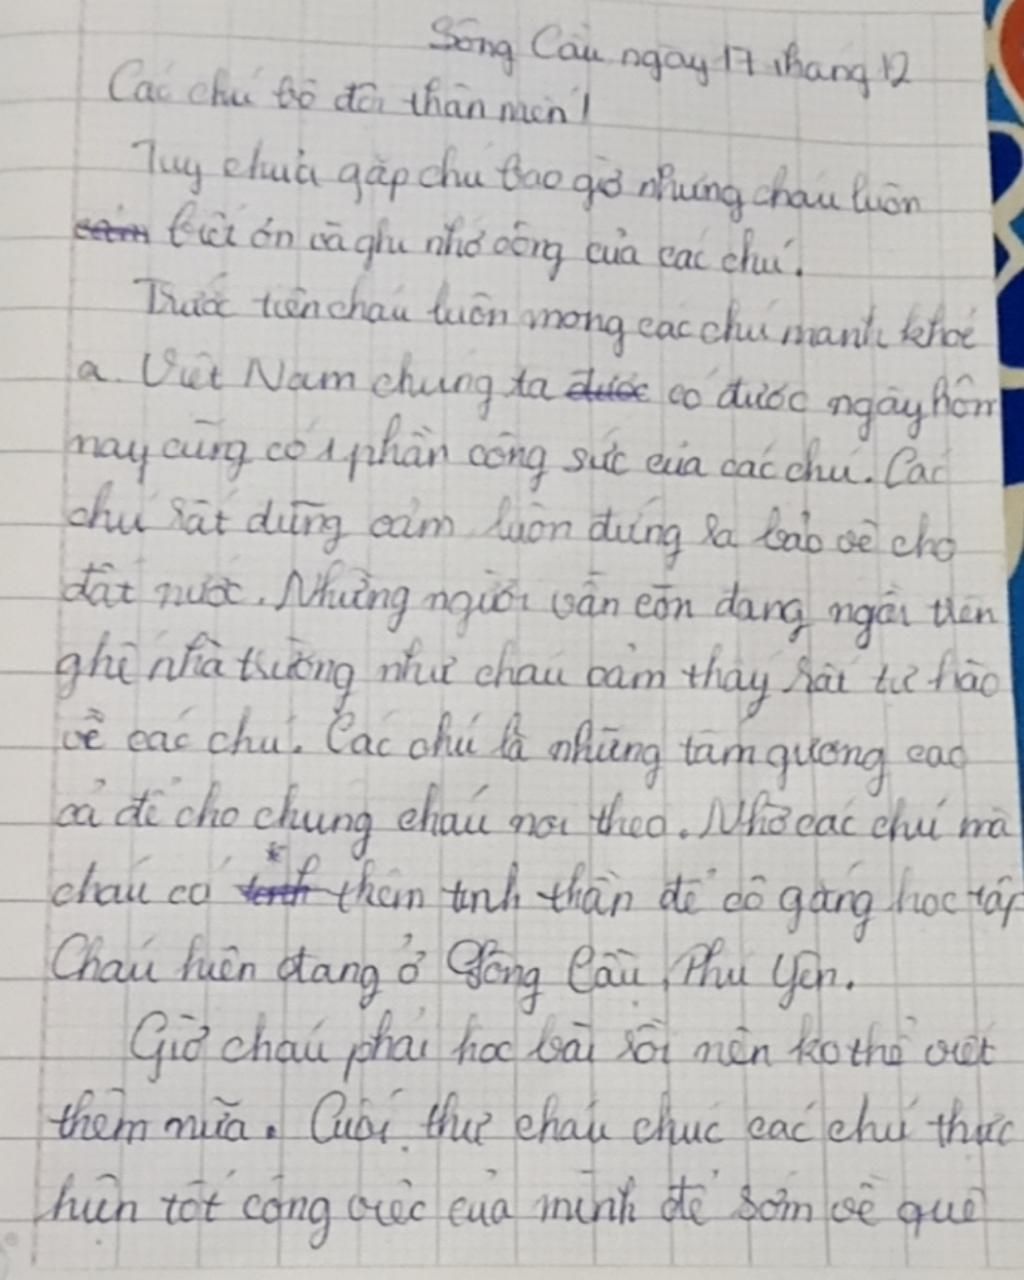 Sông Cầu ngày 17 tháng 12
Các chú bộ đội thân mến!
Tuy chưa gặp chú bao giờ nhưng cháu luôn
cảm biết ơn và ghi nhớ công của các chú.
Trước tiên cháu luôn mong các chú mạnh khoẻ
ạ. Việt Nam chúng ta được có được ngày hôm
nay cũng có 1 phần công sức của các chú. Các
chú rất dũng cảm luôn đứng ra bảo vệ cho
đất nước. Những người vẫn còn đang ngồi trên
ghế nhà trường như cháu cảm thấy rất tự hào
về các chú. Các chú là những tấm gương cao
cả để cho chúng cháu noi theo. Nhờ các chú mà
cháu có thêm tinh thần để cố gắng học tập
Cháu hiện đang ở Sông Cầu, Phú Yên.
Giờ cháu phải học bài rồi nên ko thể viết
thêm nữa. Cuối thư cháu chúc các chú thực
hiện tốt công việc của mình để sớm về quê